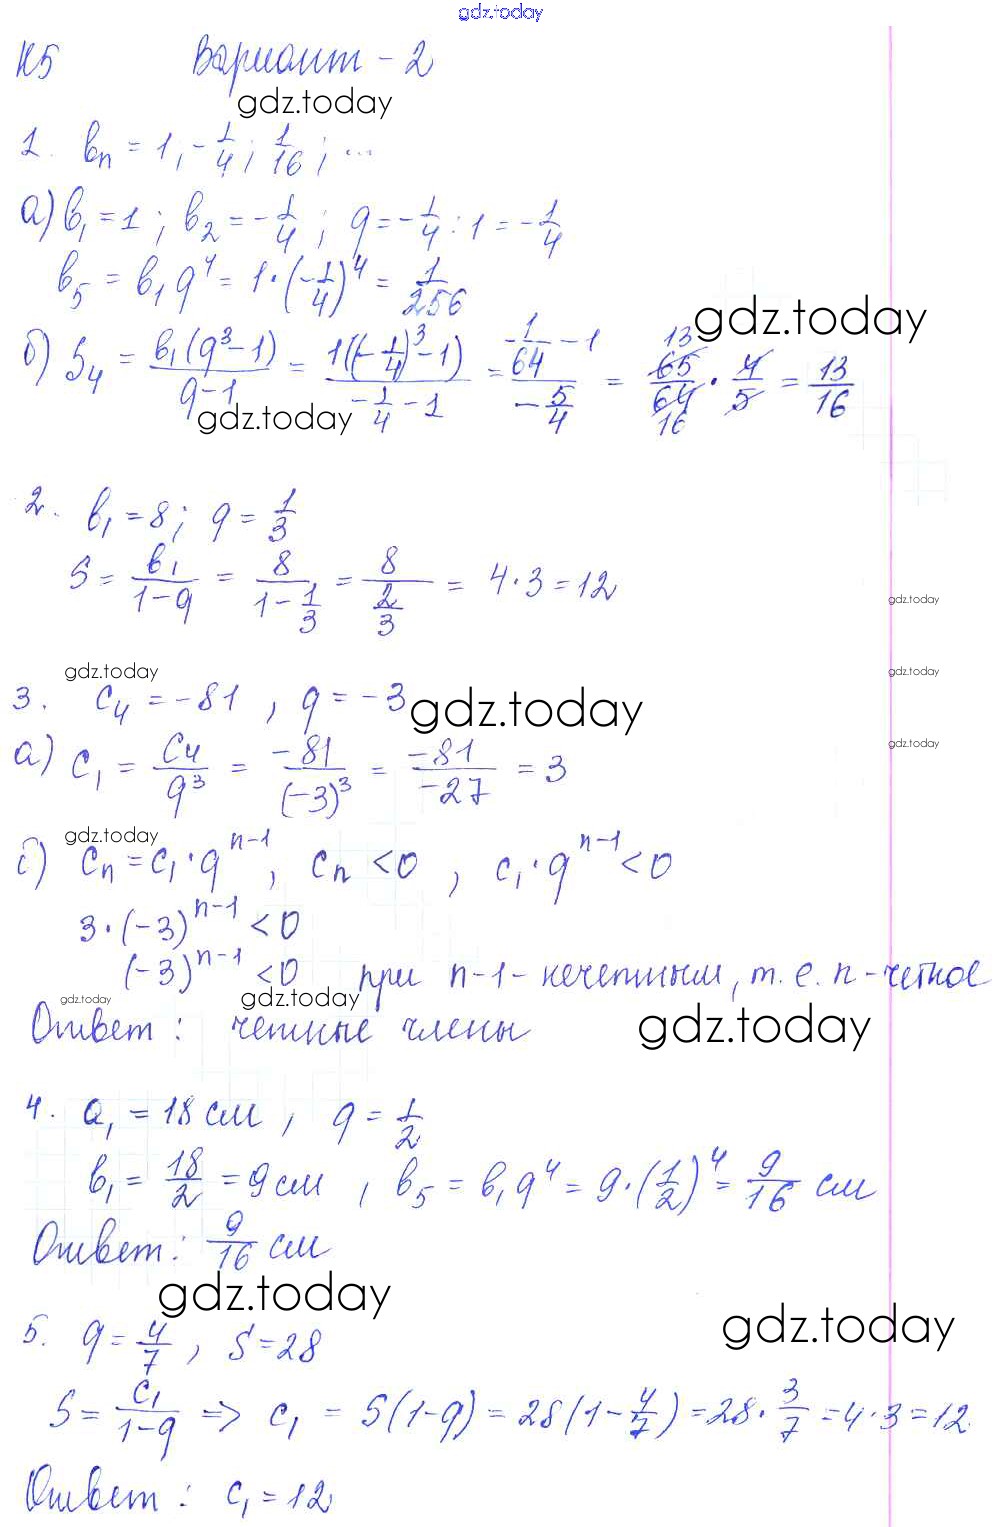 gdz.today
К5 Вариант - 2
gdz.today
1. bₙ = 1, -1/4; 1/16; ...
а) b₁ = 1; b₂ = -1/4; q = -1/4 : 1 = -1/4
b₅ = b₁q⁴ = 1·(-1/4)⁴ = 1/256
gdz.today
б) S₄ = b₁(q³-1)/(q-1) = 1((-1/4)³-1)/(-1/4-1) = (-1/64-1)/(-5/4) = 65/64 · 4/5 = 13/16
13
16
gdz.today
2. b₁ = 8; q = 1/3
S = b₁/(1-q) = 8/(1-1/3) = 8/(2/3) = 4·3 = 12
gdz.today
gdz.today
gdz.today
3. c₄ = -81, q = -3
gdz.today
а) c₁ = c₄/q³ = -81/(-3)³ = -81/-27 = 3
gdz.today
gdz.today
б) cₙ = c₁·qⁿ⁻¹, cₙ < 0, c₁·qⁿ⁻¹ < 0
3·(-3)ⁿ⁻¹ < 0
(-3)ⁿ⁻¹ < 0 при n-1 - нечетным, т.е. n - четное
gdz.today
gdz.today
gdz.today
Ответ: четные члены
4. a₁ = 18 см, q = 1/2
b₁ = 18/2 = 9 см, b₅ = b₁q⁴ = 9·(1/2)⁴ = 9/16 см
Ответ: 9/16 см
gdz.today
gdz.today
5. q = 4/7, S = 28
S = c₁/(1-q) => c₁ = S(1-q) = 28(1-4/7) = 28·3/7 = 4·3 = 12
Ответ: c₁ = 12